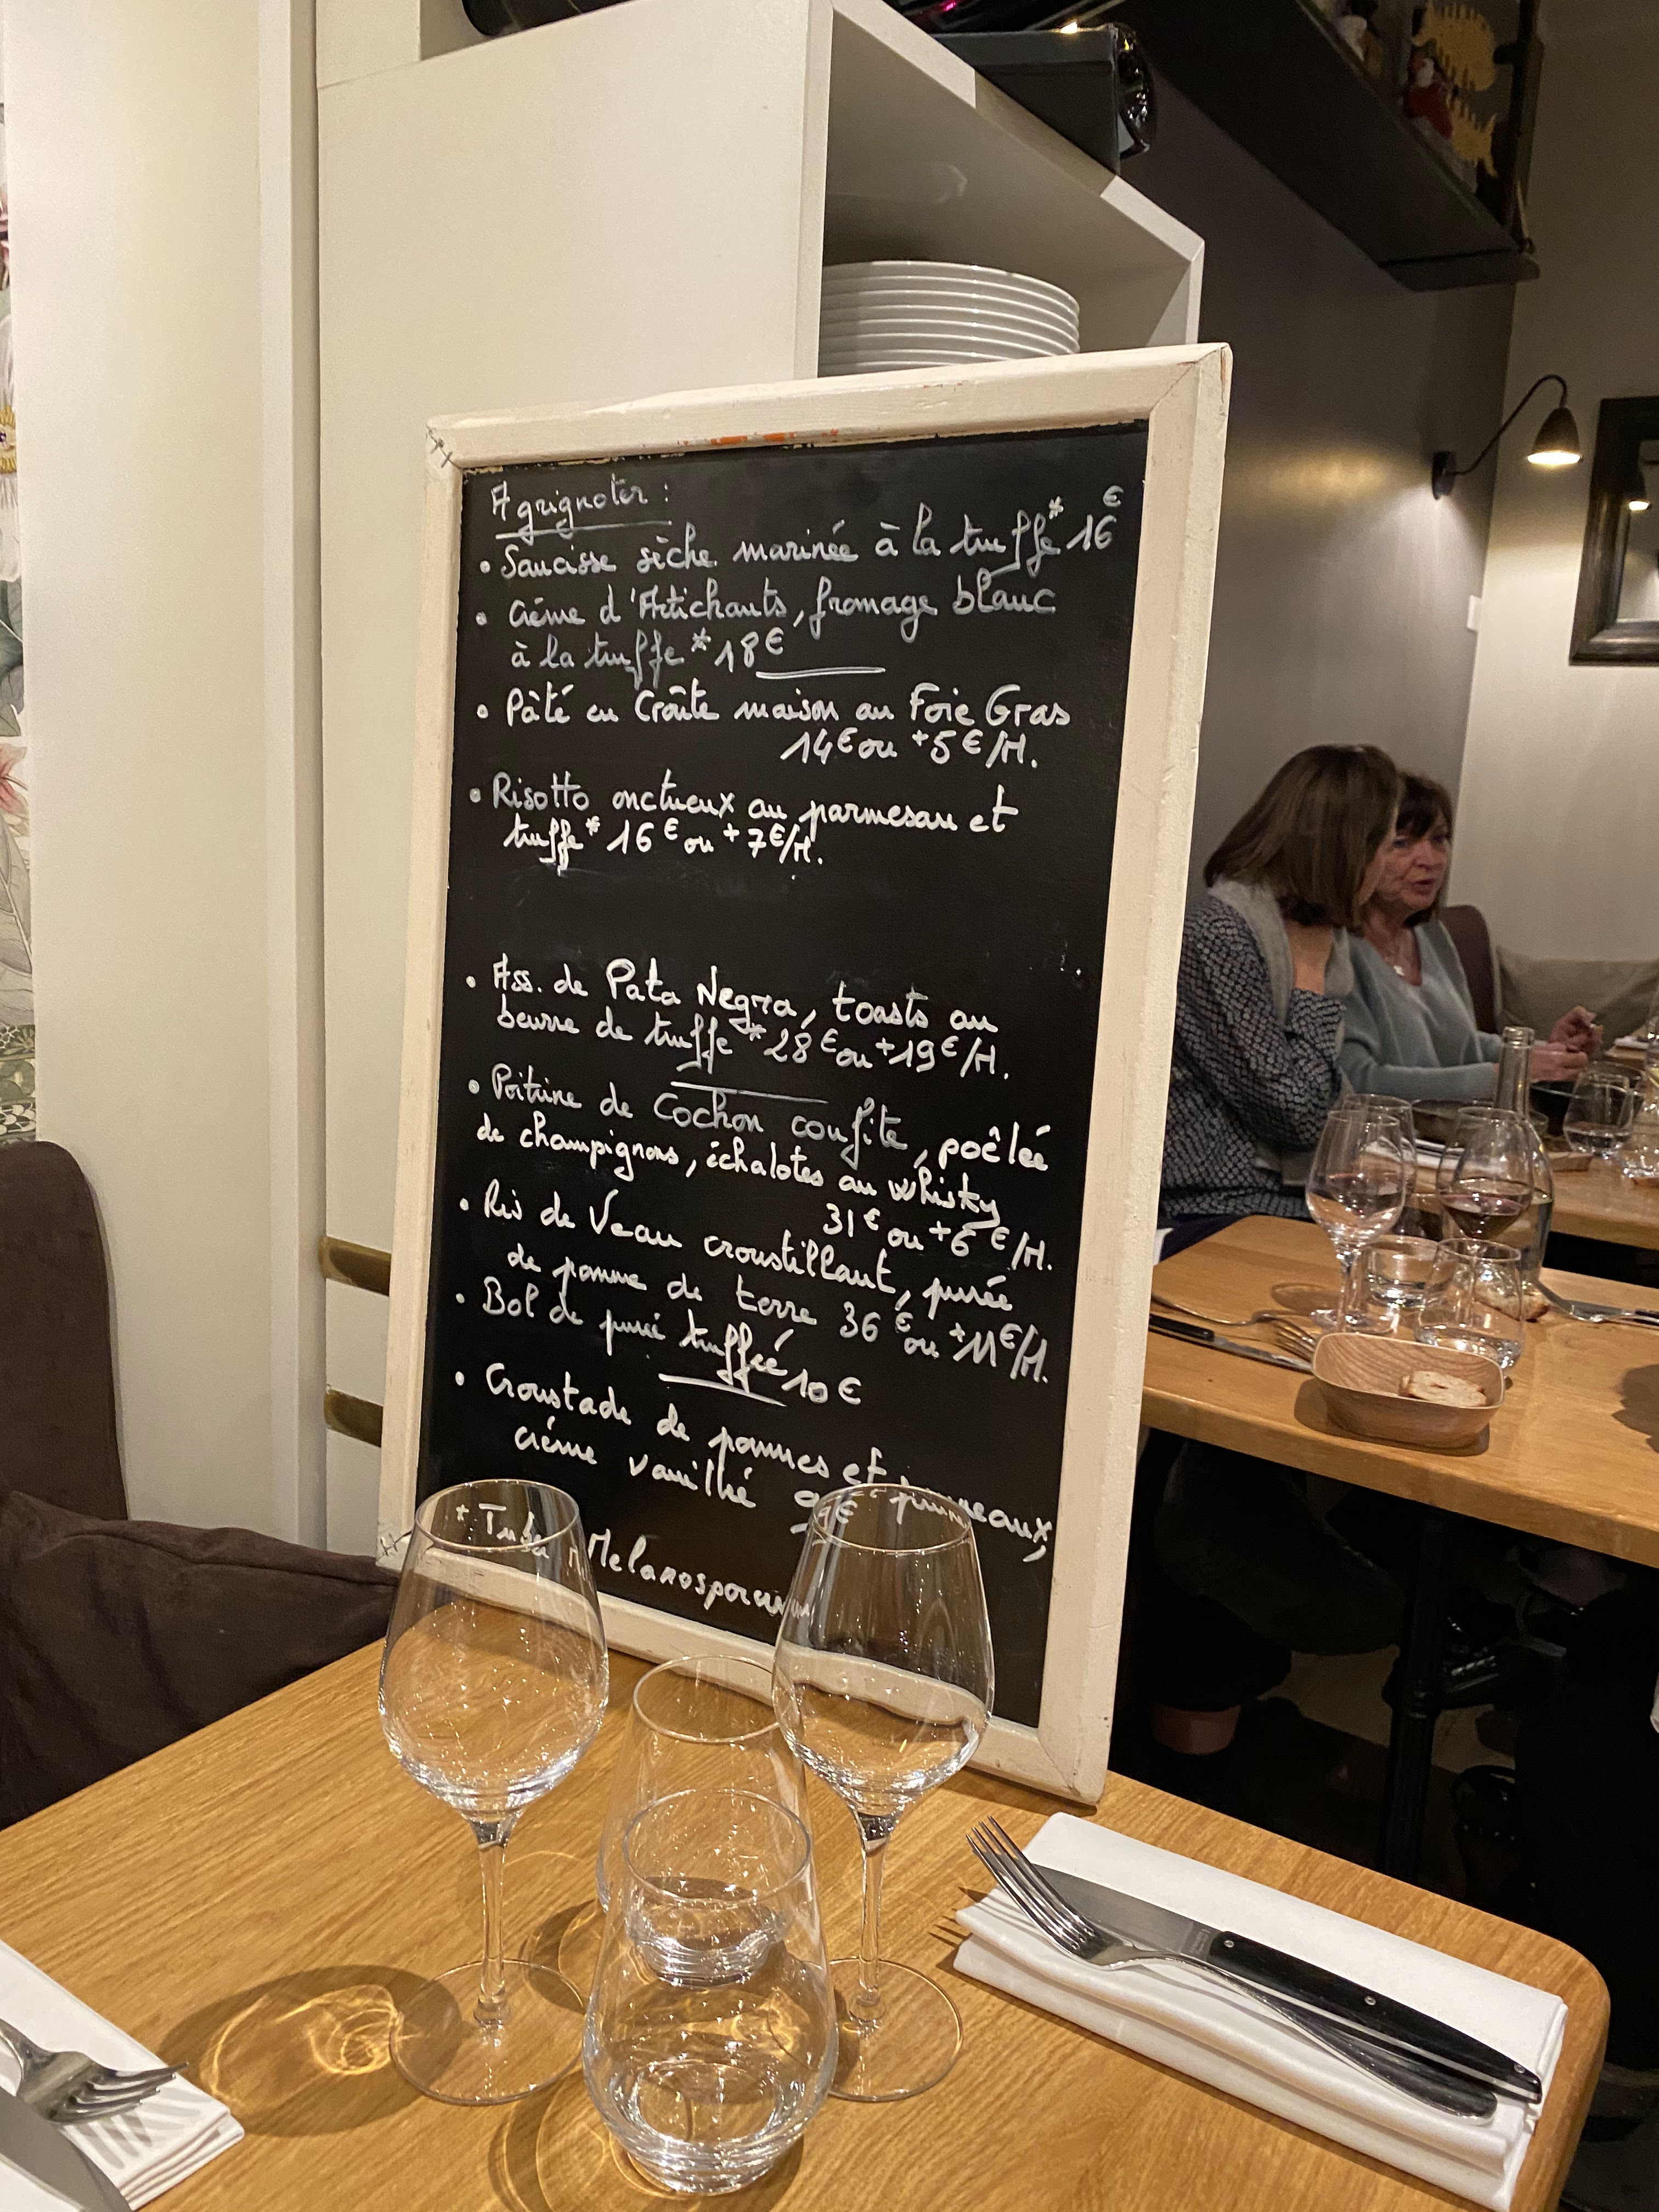 A grignoter :
• Saucisse sèche marinée à la truffe* 16€
• Crème d'Artichauts, fromage blanc
à la truffe* 18€
• Pâté en Croûte maison au Foie Gras
14€ ou +5€/M.
• Risotto onctueux au parmesan et
truffe* 16€ ou +7€/M.
• Ass. de Pata Negra, toasts au
beurre de truffe* 28€ ou +19€/M.
• Poitrine de Cochon confite, poêlée
de champignons, échalotes au whisky
31€ ou +6€/M.
• Ris de Veau croustillant, purée
de pomme de terre 36€ ou +11€/M.
• Bol de purée truffée 10€
• Croustade de pommes et pruneaux,
crème vanillé 9€
* Tuber Melanosporum